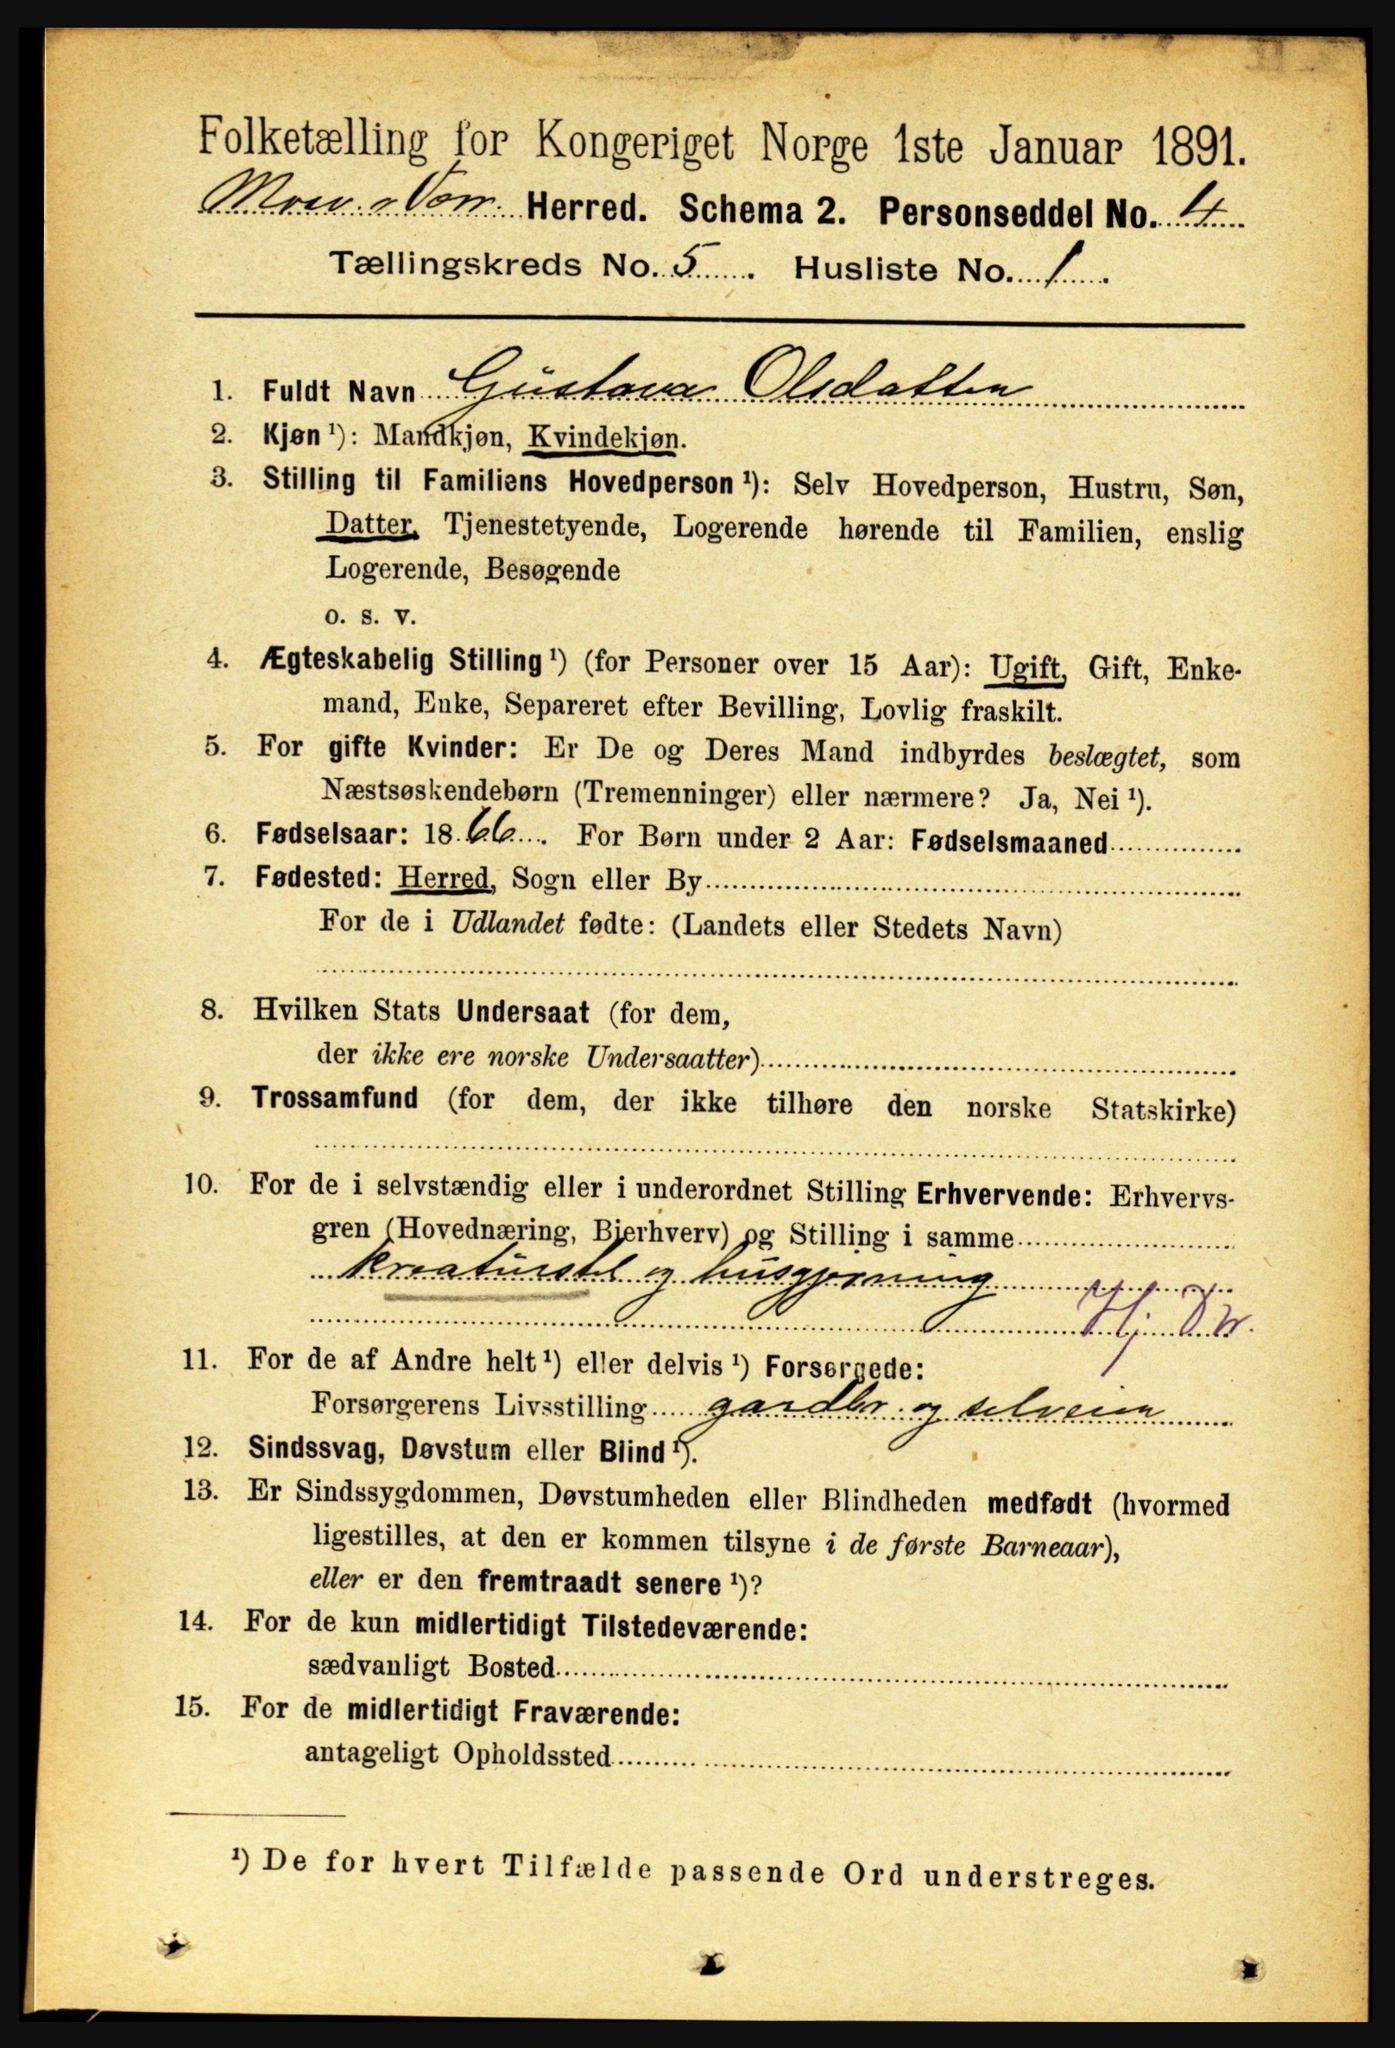 Folketælling for Kongeriget Norge 1ste Januar 1891.
Herred. Schema 2. Personseddel No. 4
Tællingskreds No. 5. Husliste No. 1.
1. Fuldt Navn Gustava Olsdatter
2. Kjøn ¹): Mandkjøn, Kvindekjøn.
3. Stilling til Familiens Hovedperson ¹): Selv Hovedperson, Hustru, Søn,
Datter, Tjenestetyende, Logerende hørende til Familien, enslig
Logerende, Besøgende
o. s. v.
4. Ægteskabelig Stilling ¹) (for Personer over 15 Aar): Ugift, Gift, Enke-
mand, Enke, Separeret efter Bevilling, Lovlig fraskilt.
5. For gifte Kvinder: Er De og Deres Mand indbyrdes beslægtet, som
Næstsøskendebørn (Tremenninger) eller nærmere? Ja, Nei ¹).
6. Fødselsaar: 1866. For Børn under 2 Aar: Fødselsmaaned
7. Fødested: Herred, Sogn eller By
For de i Udlandet fødte: (Landets eller Stedets Navn)
8. Hvilken Stats Undersaat (for dem,
der ikke ere norske Undersaatter)
9. Trossamfund (for dem, der ikke tilhøre den norske Statskirke)
10. For de i selvstændig eller i underordnet Stilling Erhvervende: Erhvervs-
gren (Hovednæring, Bierhverv) og Stilling i samme
kreaturstel og husgjerning
Hj. Dtr.
11. For de af Andre helt ¹) eller delvis ¹) Forsørgede:
Forsørgerens Livsstilling gaardbr. og selveier
12. Sindssvag, Døvstum eller Blind ¹).
13. Er Sindssygdommen, Døvstumheden eller Blindheden medfødt (hvormed
ligestilles, at den er kommen tilsyne i de første Barneaar),
eller er den fremtraadt senere ¹)?
14. For de kun midlertidigt Tilstedeværende:
sædvanligt Bosted
15. For de midlertidigt Fraværende:
antageligt Opholdssted
¹) De for hvert Tilfælde passende Ord understreges.